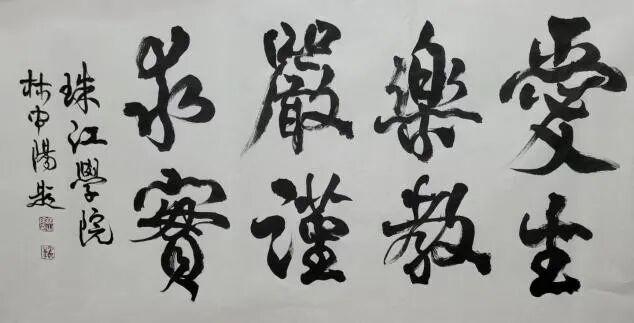 愛生
樂教
嚴謹
求實
珠江學院
林中陽題